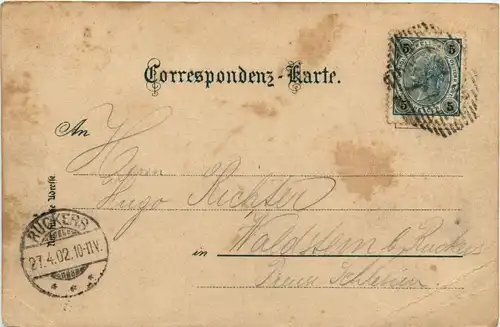 Correspondenz-Karte.
5 5
5 5
An
Herrn
Hugo Richter
in Waldstein b. Rückers
Preuss. Schlesien.
Nur für die Adresse.
RÜCKERS
27.4.02.10-11V.